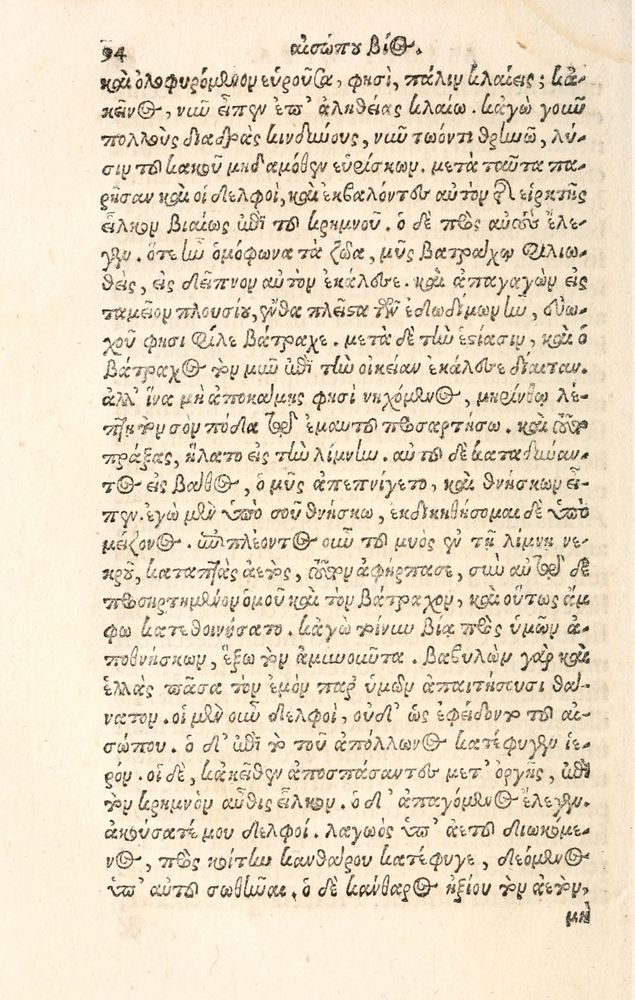 94 αἰσώπου βίος.
καὶ ὀλοφυρόμενον εὑροῦσα, φησὶ, πάλιν κλαίεις; κἀ-
κεῖνος, νῦν εἶπεν ἐπ' ἀληθείας κλαίω. κἀγὼ γοῦν
πολλοὺς διαδρὰς κινδύνους, νῦν τωόντι θρηνῶ, λύ-
σιν τοῦ κακοῦ μηδαμόθεν εὑρίσκων. μετὰ ταῦτα πα-
ρῆσαν καὶ οἱ δελφοὶ, καὶ ἐκβαλόντες αὐτὸν τῆς εἱρκτῆς
εἷλκον βιαίως ἐπὶ τοῦ κρημνοῦ. ὁ δὲ πρὸς αὐτοὺς ἔλε-
γεν. ὅτε ἦν ὁμόφωνα τὰ ζῶα, μῦς βατράχῳ φιλιω-
θεὶς, εἰς δεῖπνον αὐτὸν ἐκάλεσε. καὶ ἀπαγαγὼν εἰς
ταμεῖον πλουσίου, ἔνθα πλεῖστα τῶν ἐδωδίμων ἦν, εὐω-
χοῦ φησι φίλε βάτραχε. μετὰ δὲ τὴν ἑστίασιν, καὶ ὁ
βάτραχος τὸν μῦν ἐπὶ τὴν οἰκείαν ἐκάλεσε δίαιταν.
ἀλλ' ἵνα μὴ ἀποκάμῃς φησὶ νηχόμενος, μηρίνθῳ λε-
πτῇ τὸν σὸν πόδα τῷ ἐμαυτοῦ προσαρτήσω. καὶ τοῦτο
πράξας, ἥλατο εἰς τὴν λίμνην. αὐτοῦ δὲ καταδύσαν-
τος εἰς βάθος, ὁ μῦς ἀπεπνίγετο, καὶ θνήσκων εἶ-
πεν. ἐγὼ μὲν ὑπὸ σοῦ θνήσκω, ἐκδικηθήσομαι δὲ ὑπὸ
μείζονος. ἐπιπλέοντος οὖν τοῦ μυὸς ἐν τῇ λίμνῃ νε-
κροῦ, καταπτὰς ἀετὸς, τοῦτον ἀφήρπασε, σὺν αὐτῷ δὲ
προσηρτημένον ὁμοῦ καὶ τὸν βάτραχον, καὶ οὕτως ἄμ
φω κατεθοινήσατο. κἀγὼ τοίνυν βίᾳ πρὸς ὑμῶν ἀ-
ποθνήσκων, ἕξω τὸν ἀμυνοῦντα. βαβυλὼν γὰρ καὶ
ἑλλὰς πᾶσα τὸν ἐμὸν παρ' ὑμῶν ἀπαιτήσουσι θά-
νατον. οἱ μὲν οὖν δελφοὶ, οὐδ' ὣς ἐφείδοντο τοῦ αἰ-
σώπου. ὁ δ' ἐπὶ τὸ τοῦ ἀπόλλωνος κατέφυγεν ἱε-
ρόν. οἱ δὲ, κἀκεῖθεν ἀποσπάσαντες μετ' ὀργῆς, ἐπὶ
τὸν κρημνὸν αὖθις εἷλκον. ὁ δ' ἀπαγόμενος ἔλεγεν.
ἀκούσατέ μου δελφοί. λαγωὸς ὑπ' ἀετοῦ διωκόμε-
νος, πρὸς κοίτην κανθάρου κατέφυγε, δεόμενος
ὑπ' αὐτοῦ σωθῆναι. ὁ δὲ κάνθαρος ἠξίου τὸν ἀετὸν,
μὴ